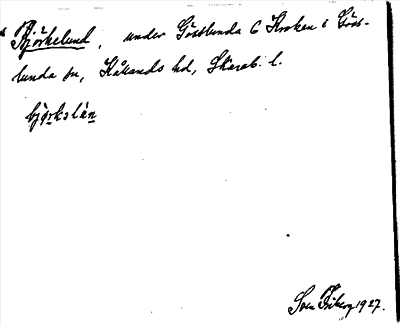 Björkelund, under Gösslunda 6 Kroken i Göss-
lunda sn, Kållands hd, Skarab. l.
bjørkəlún
Sven Friberg 1927.